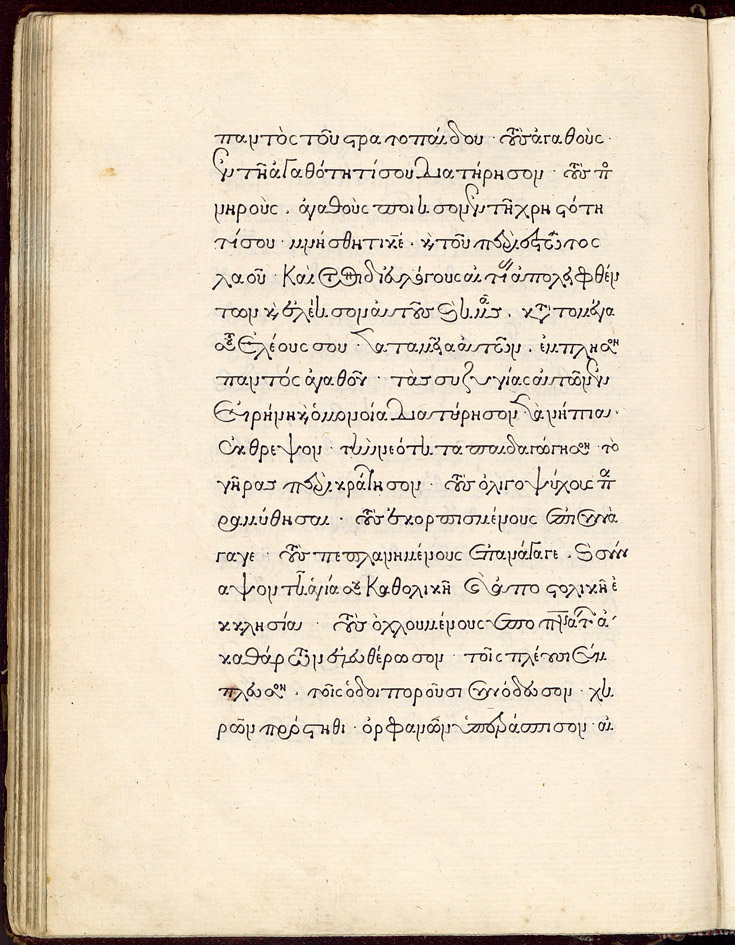 παντὸς τοῦ στρατοπαίδου · τοὺς ἀγαθοὺς ·
ἐν τῆ ἀγαθότητί σου διατήρησον · τοὺς πο
νηροὺς · ἀγαθοὺς ποίησον ἐν τῆ χρηστότη
τί σου · μνήσθητι κε · καὶ τοῦ περιεστῶτος
λαοῦ · Καὶ τῶν δι' εὐλόγους αἰτίας ἀπολειφθέν
των καὶ ἐλέησον αὐτοὺς καὶ ἡμᾶς · κατὰ τὸ μέγα
ἔλεους σου · τὰ ταμεῖα αὐτῶν · ἔμπλησον
παντὸς ἀγαθοῦ · τὰς συζυγίας αὐτῶν ἐν
εἰρήνη καὶ ὁμονοία διατήρησον τὰ νήπια ·
ἔκθρεψον · τὴν νεότητα παιδαγώγησον · τὸ
γῆρας περικράτησον · τοὺς ὀλιγοψύχους πα
ραμύθησαι · τοὺς ἐσκορπισμένους ἐπισυνά
γαγε · τοὺς πεπλανημένους ἐπανάγαγε · καὶ σύν
αψον τῆ ἁγία σου Καθολικῆ καὶ ἀποστολικῆ ἐ
κκλησία · τοὺς ὀχλουμένους ὑπὸ πνάτων ἀ
καθάρτων ἐλευθέρωσον · τοῖς πλέουσι σύμ
πλευσον · τοῖς ὁδοιποροῦσι συνόδευσον · χη
ρῶν πρόστηθι · ὀρφανῶν ὑπεράσπισον · αἰ